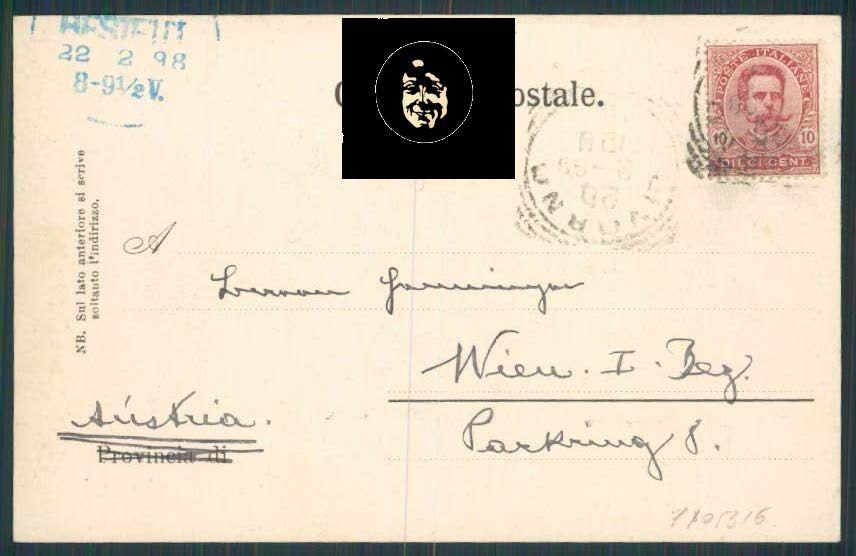 BESTELLT
22 2 98
8-9½V.
ostale.
POSTE ITALIANE
10 10
DIECI CENT.
LIVORNO
20
2-98
NB. Sul lato anteriore si scrive
soltanto l'indirizzo.
A
Wien. I. Bez.
Austria.
Parkring 8.
Provincia di